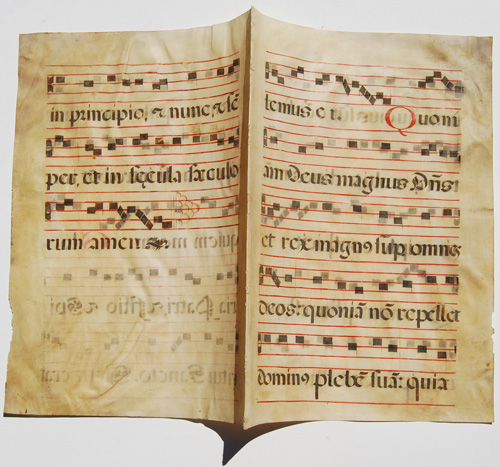 in principio, & nunc, & sē
per, et in sęcula sæculo
rum amen
lemus e i Quoni
am Deus magnus Dn̄s
et rex magn9 sup omnes
deos: quoniā nō repellet
domin9 plebē suā: quia